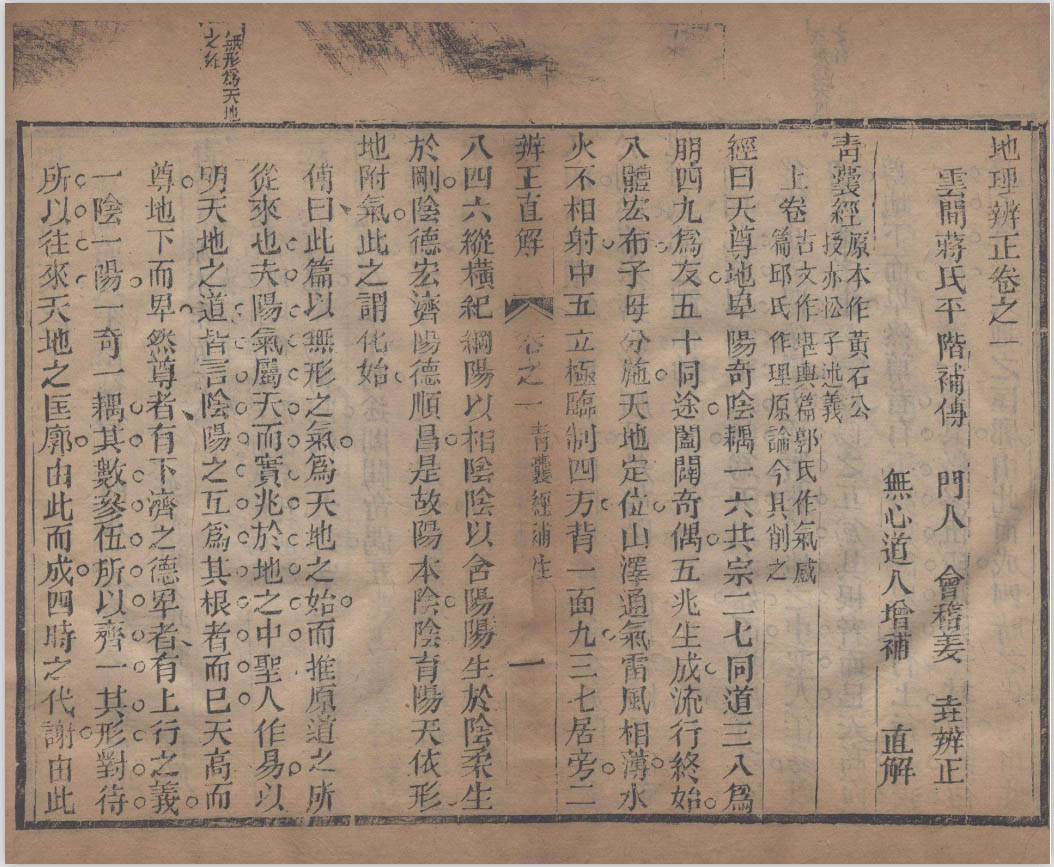 地理辨正卷之一
雲間蔣氏平階補傳　門人　會稽姜　垚辨正
無心道人增補　直解
青囊經原本作黃石公
授赤松子述義
上卷古文作堪輿篇郭氏作氣感
篇邱氏作理原論今具削之
經曰天尊地卑陽奇陰耦一六共宗二七同道三八爲
朋四九爲友五十同途闔闢奇偶五兆生成流行終始
八體宏布子母分施天地定位山澤通氣雷風相薄水
火不相射中五立極臨制四方背一面九三七居旁二
辨正直解　卷之一　青囊經補注　一
八四六縱橫紀綱陽以相陰陰以含陽陽生於陰柔生
於剛陰德宏濟陽德順昌是故陽本陰陰育陽天依形
地附氣此之謂化始
傳曰此篇以無形之氣爲天地之始而推原道之所
從來也夫陽氣屬天而實兆於地之中聖人作易以
明天地之道皆言陰陽之互爲其根者而已天高而
尊地下而卑然尊者有下濟之德卑者有上行之義
一陰一陽一奇一耦其數參伍所以齊一其形對待
所以往來天地之匡廓由此而成四時之代謝由此
無形爲天地
之始